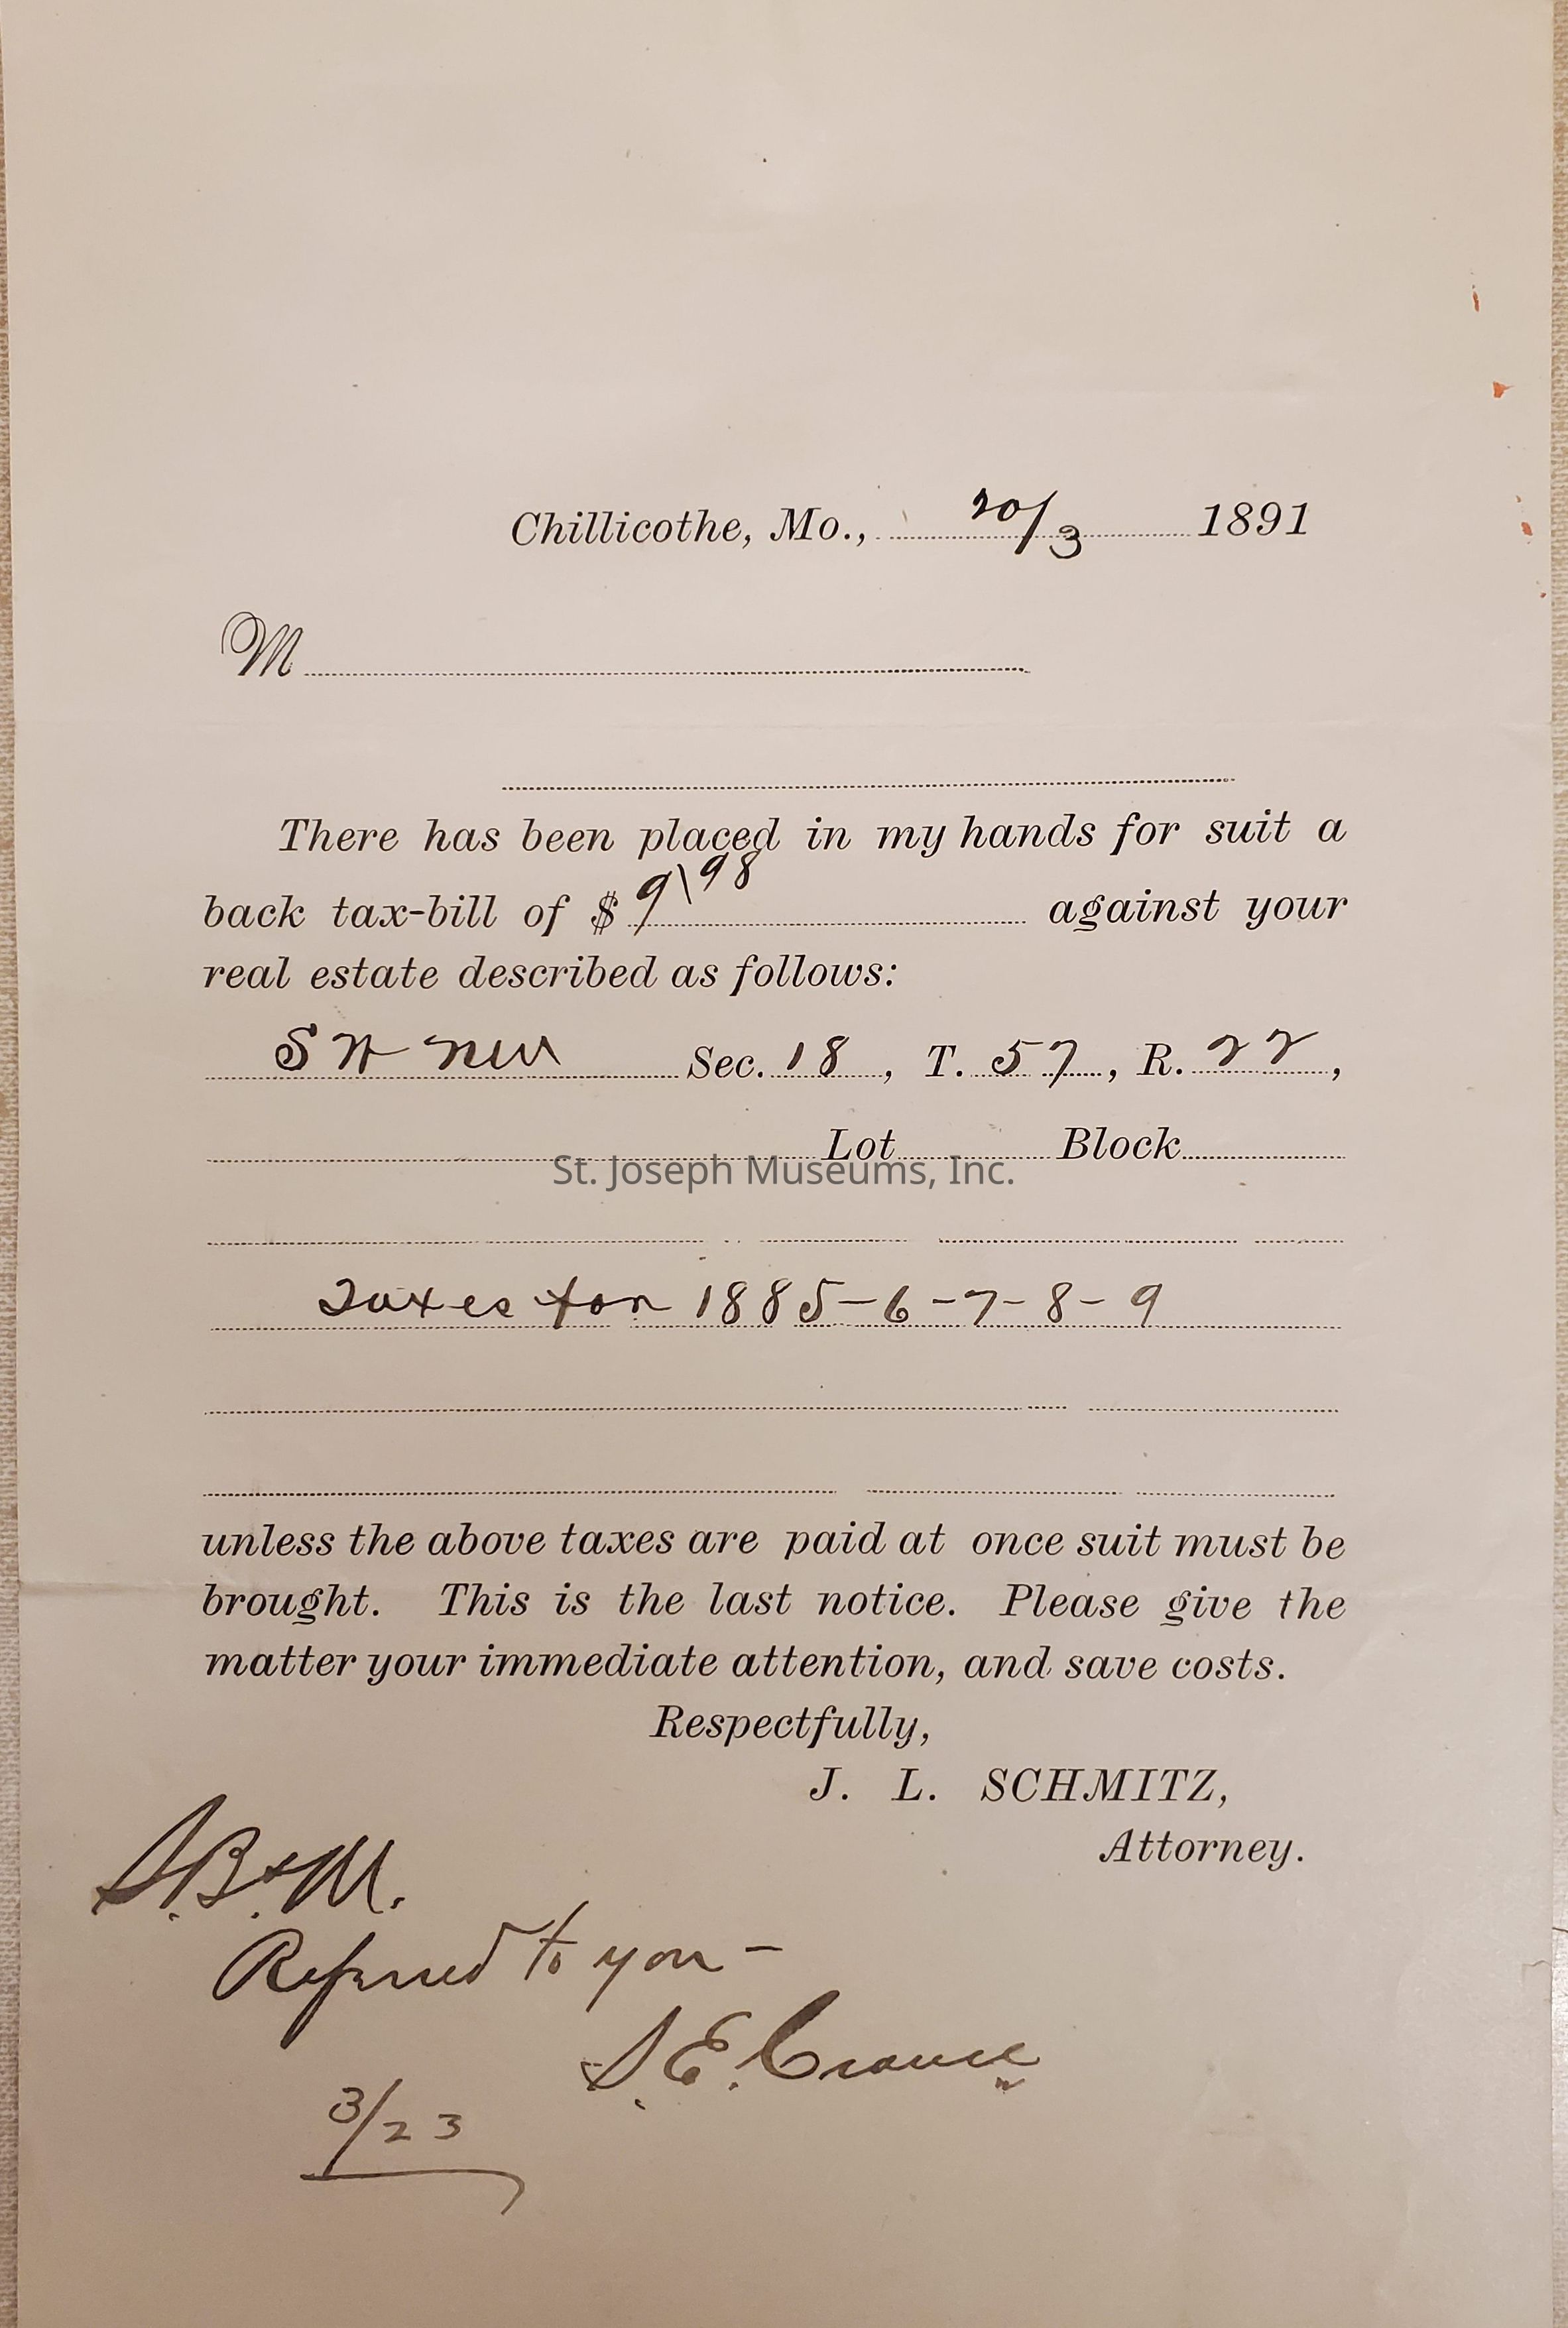 Chillicothe, Mo., 20/3 1891
M
There has been placed in my hands for suit a
back tax-bill of $ 9\98 against your
real estate described as follows:
S H NW Sec. 18, T. 57, R. 22,
Lot Block
St. Joseph Museums, Inc.
Taxes for 1885-6-7-8-9
unless the above taxes are paid at once suit must be
brought. This is the last notice. Please give the
matter your immediate attention, and save costs.
Respectfully,
J. L. SCHMITZ,
Attorney.
S.B.&M.
Referred to you -
S.E. Crance
3/23